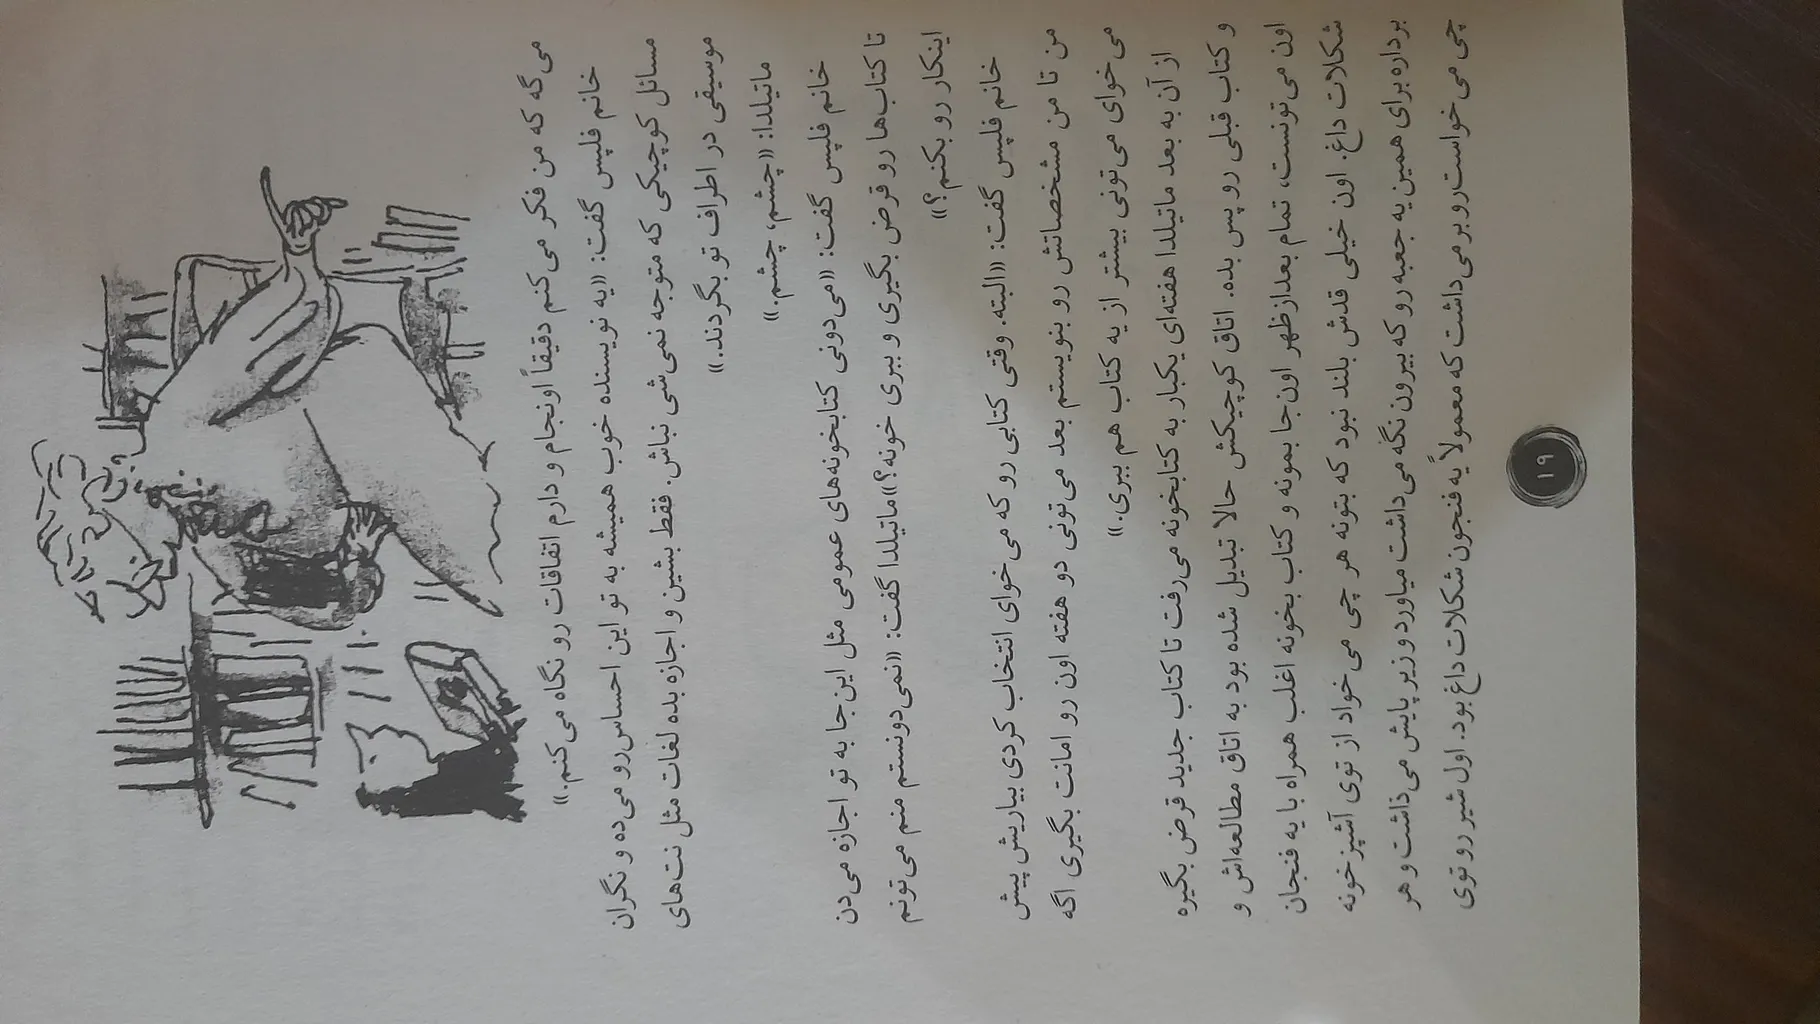 می‌گه که من فکر می‌کنم دقیقاً اونجام و دارم اتفاقات رو نگاه می‌کنم.»
خانم فلپس گفت: «یه نویسنده خوب همیشه به تو این احساس رو می‌ده و نگران
مسائل کوچیکی که متوجه نمی‌شی نباش. فقط بشین و اجازه بده لغات مثل نت‌های
موسیقی در اطراف تو بگردند.»
ماتیلدا: «چشم، چشم.»
خانم فلپس گفت: «می‌دونی کتابخونه‌های عمومی مثل این جا به تو اجازه می‌دن
تا کتاب‌ها رو قرض بگیری و ببری خونه؟» ماتیلدا گفت: «نمی‌دونستم منم می‌تونم
اینکار رو بکنم؟»
خانم فلپس گفت: «البته. وقتی کتابی رو که می‌خوای انتخاب کردی بیاریش پیش
من تا من مشخصاتش رو بنویسم بعد می‌تونی دو هفته اون رو امانت بگیری اگه
می‌خوای می‌تونی بیشتر از یه کتاب هم ببری.»
از آن به بعد ماتیلدا هفته‌ای یکبار به کتابخونه می‌رفت تا کتاب جدید قرض بگیره
و کتاب قبلی رو پس بده. اتاق کوچیکش حالا تبدیل شده بود به اتاق مطالعه‌اش و
اون می‌تونست، تمام بعدازظهر اون‌جا بمونه و کتاب بخونه اغلب همراه با یه فنجان
شکلات داغ. اون خیلی قدش بلند نبود که بتونه هر چی می‌خواد از توی آشپزخونه
برداره برای همین یه جعبه رو که بیرون نگه می‌داشت میاورد و زیر پایش می‌ذاشت و هر
چی می‌خواست رو برمی‌داشت که معمولاً یه فنجون شکلات داغ بود. اول شیر رو توی
۱۹